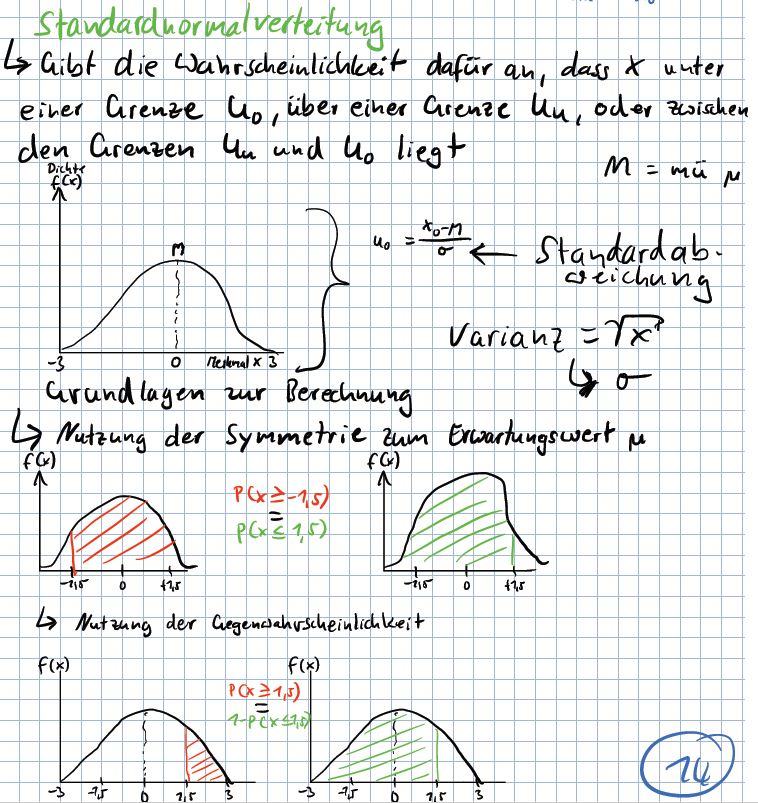 Standardnormalverteitung
↳ Gibt die Wahrscheinlichkeit dafür an, dass x unter
einer Grenze u₀, über einer Grenze Uu, oder zwischen
den Grenzen Uu und U₀ liegt
M = mü μ
Dichte
f(x)
M
-3 0 Merkmal x 3
u₀ = x₀-M / σ ← Standardab-
weichung
Varianz = √x²
↳ σ
Grundlagen zur Berechnung
↳ Nutzung der Symmetrie zum Erwartungswert μ
f(x)
-1,5 0 +1,5
P(x ≥ -1,5)
=
P(x ≤ 1,5)
f(x)
-1,5 0 +1,5
↳ Nutzung der Gegenwahrscheinlichkeit
f(x)
-3 -1,5 0 1,5 3
P(x ≥ 1,5)
=
1-P(x ≤ 1,5)
f(x)
-3 -1,5 0 1,5 3
14